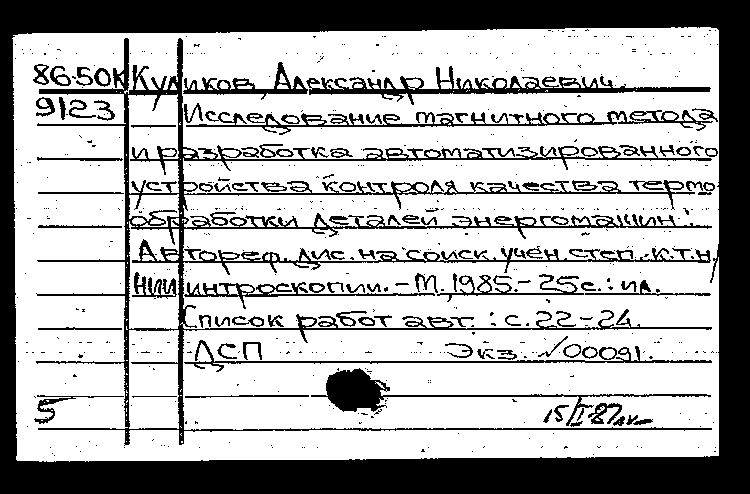 86-50К Куликов, Александр Николаевич.
9123 Исследование магнитного метода
и разработка автоматизированного
устройства контроля качества термо-
обработки деталей энергомашин :
Автореф. дис. на соиск. учен. степ. к.т.н.
НИИ интроскопии. - М., 1985. - 25 с. : ил.
Список работ авт. : с. 22-24.
ДСП Экз. √00091.
5 15/I-87